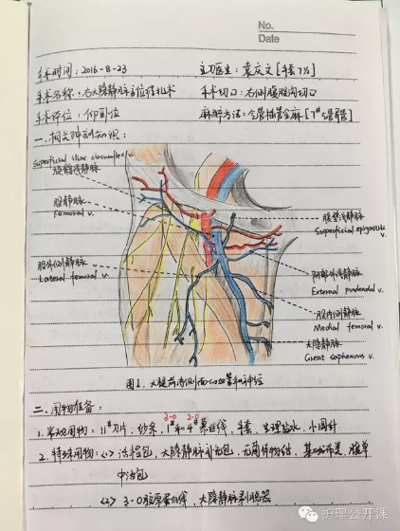 No.
Date
手术时间：2016-8-23 主刀医生：袁庆文［手套7½］
手术名称：右大隐静脉高位结扎术 手术切口：右侧腹股沟切口
手术体位：仰卧位 麻醉方法：全管插管全麻［7#管］
一、相关解剖知识：
Superficial iliac circumflex v.
旋髂浅静脉
股静脉
Femoral v.
股外侧静脉
Lateral femoral v.
腹壁浅静脉
Superficial epigastric v.
阴部外静脉
External pudendal v.
股内侧静脉
Medial femoral v.
大隐静脉
Great saphenous v.
图1. 大腿前内侧面的血管和神经
二、用物准备：
1. 常规用物：11#刀片、纱条、1#和4#慕丝线、手套、生理盐水、小圆针
2-0 2-0
2. 特殊用物：<1> 大隐静脉补充包、基础布类、腹单
中治包
<2> 3-0胶原蛋白线、大隐静脉剥脱器
护理公开课